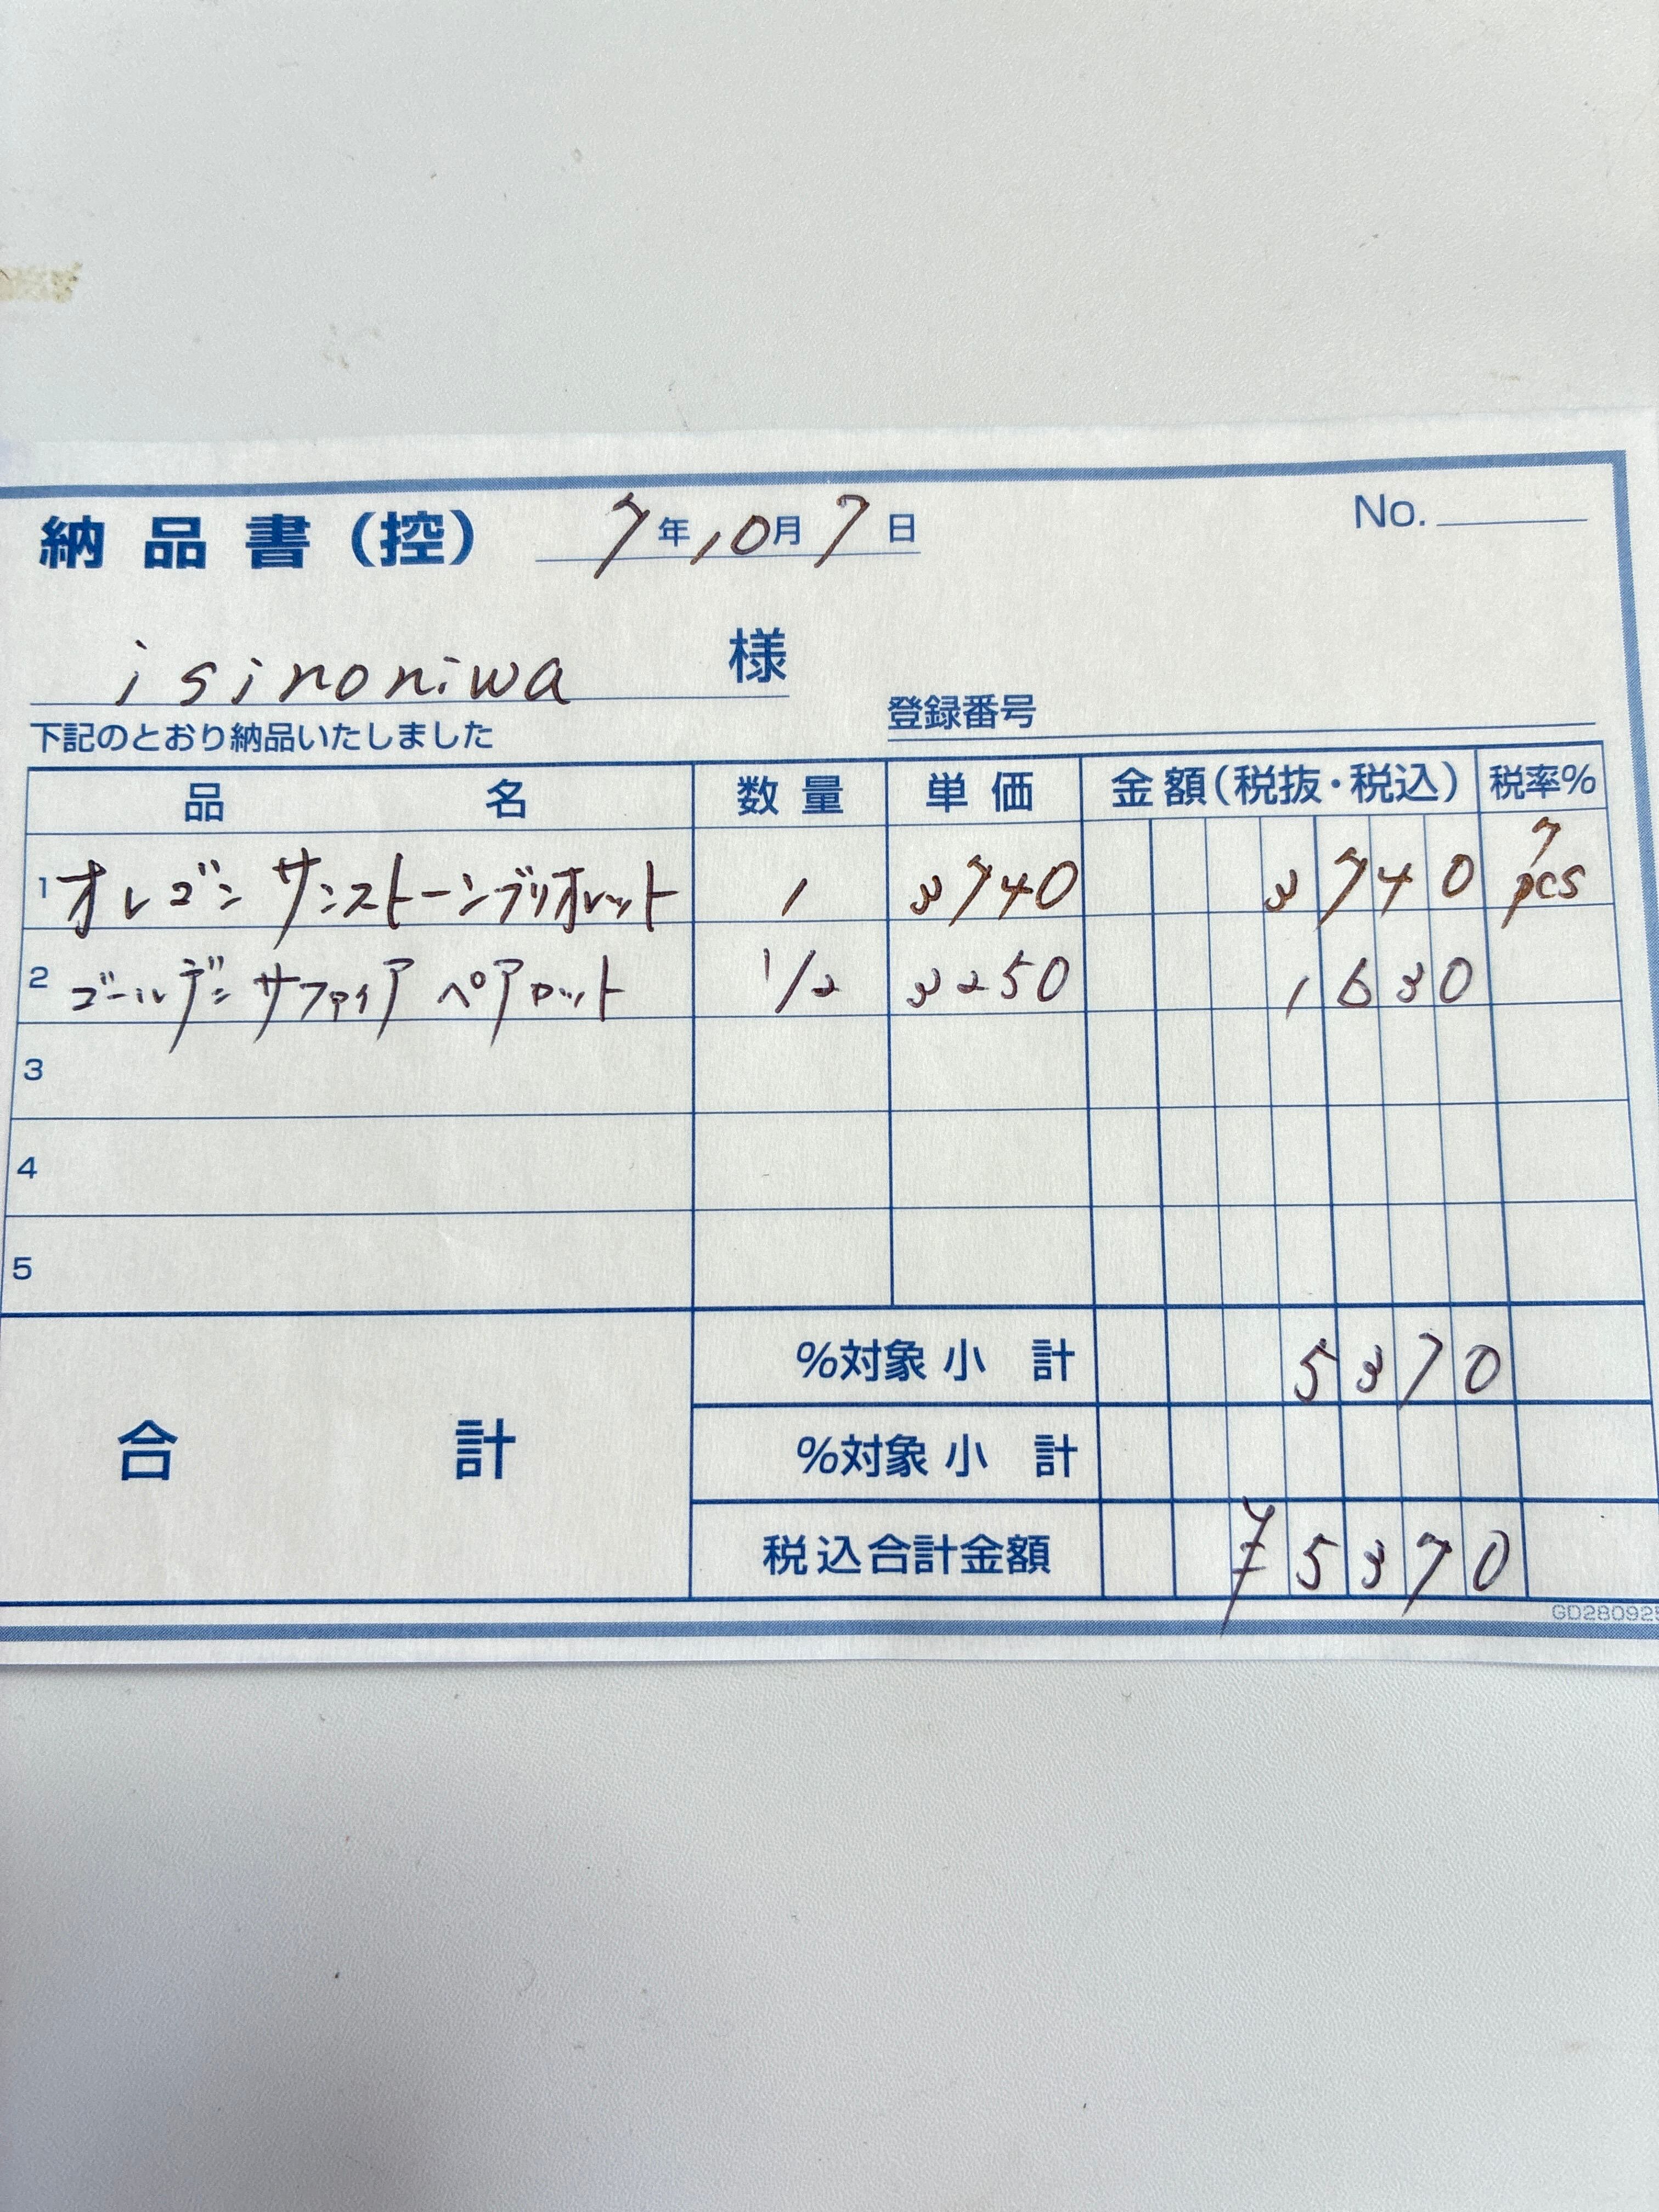 納品書(控) 7年10月7日 No.
isinoniwa 様
下記のとおり納品いたしました 登録番号
品名 数量 単価 金額(税抜・税込) 税率%
1 オレゴン サンストーンブリオレット 1 3740 3740 7pcs
2 ゴールデン サファイア ペアロット 1/2 3250 1630
3
4
5
%対象 小計 5370
合計 %対象 小計
税込合計金額 ¥5370
GD280925